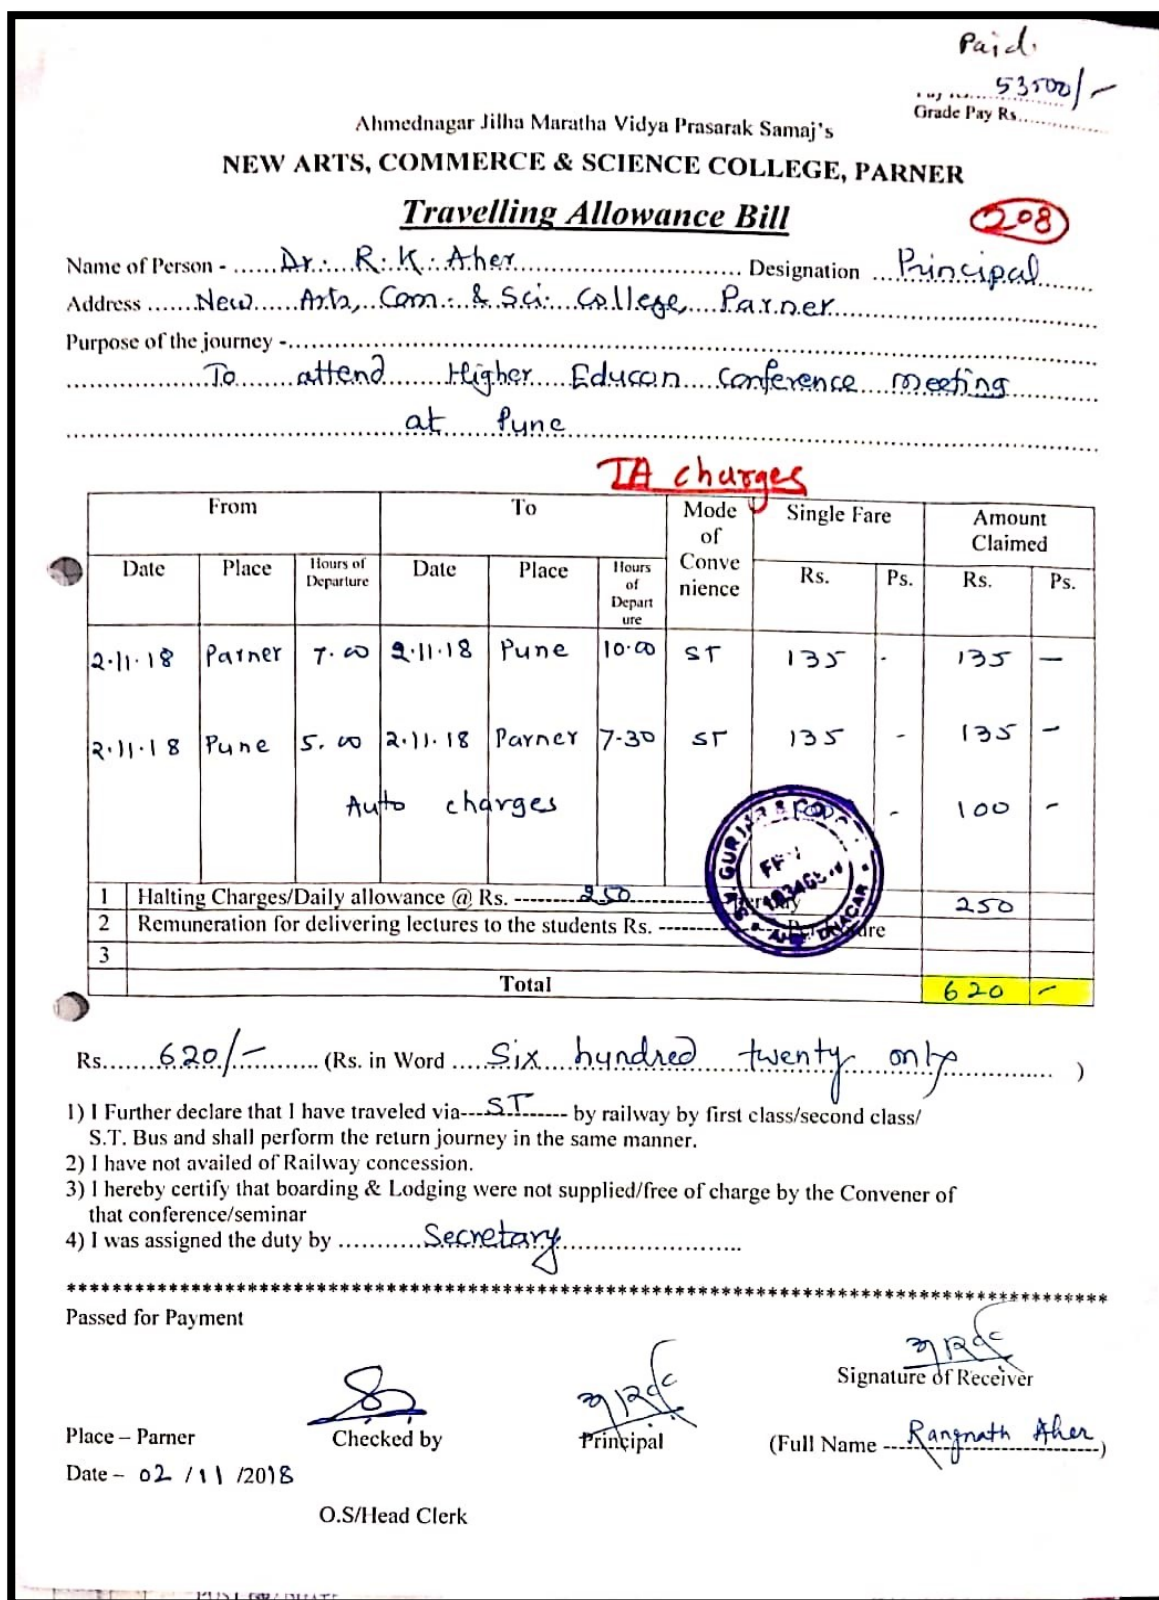 Paid.
53500/-
Grade Pay Rs.............
Ahmednagar Jilha Maratha Vidya Prasarak Samaj's
NEW ARTS, COMMERCE & SCIENCE COLLEGE, PARNER
Travelling Allowance Bill
208
Name of Person - ...... Dr. R. K. Aher ...... Designation ... Principal ......
Address ...... New Arts, Com. & Sci. College, Parner ......
Purpose of the journey -......
...... To attend Higher Educan Conference meeting ......
...... at Pune ......
TA charges
From To Mode of Conve nience Single Fare Amount Claimed
Date Place Hours of Departure Date Place Hours of Depart ure Rs. Ps. Rs. Ps.
2.11.18 Parner 7.00 2.11.18 Pune 10.00 ST 135 - 135 -
2.11.18 Pune 5.00 2.11.18 Parner 7-30 ST 135 - 135 -
Auto charges - 100 -
1 Halting Charges/Daily allowance @ Rs. --------250-------- 250
2 Remuneration for delivering lectures to the students Rs. ----------
3
Total 620 -
Rs...... 620/- ...... (Rs. in Word ..... Six hundred twenty only ...... )
1) I Further declare that I have traveled via---ST------- by railway by first class/second class/
S.T. Bus and shall perform the return journey in the same manner.
2) I have not availed of Railway concession.
3) I hereby certify that boarding & Lodging were not supplied/free of charge by the Convener of
that conference/seminar
4) I was assigned the duty by ........... Secretary ...........
********************************************************************************
Passed for Payment
Signature of Receiver
Place – Parner Checked by Principal (Full Name --- Rangnath Aher ---)
Date – 02 /11 /2018
O.S/Head Clerk